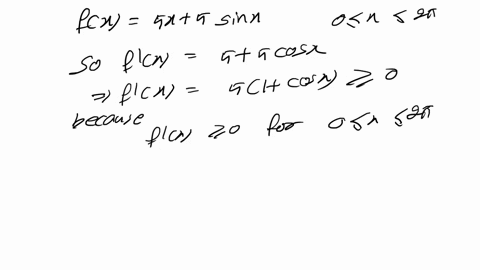 f(x) = 5x + 5 sinx 0 ≤ x ≤ 2π
So f'(x) = 5 + 5 cosx
⇒ f'(x) = 5(1 + cosx) ≥ 0
because f'(x) ≥ 0 for 0 ≤ x ≤ 2π